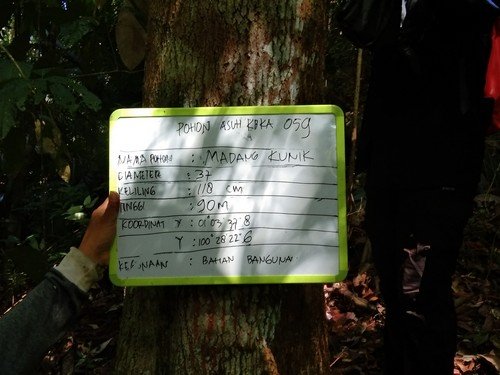 POHON ASUH KPKA 059
NAMA POHON : MADANG KUNIK
DIAMETER : 37
KELILING : 118 CM
TINGGI : 20M
KOORDINAT X : 01°03'37"8
Y : 100°28'22"6
KEGUNAAN : BAHAN BANGUNAN